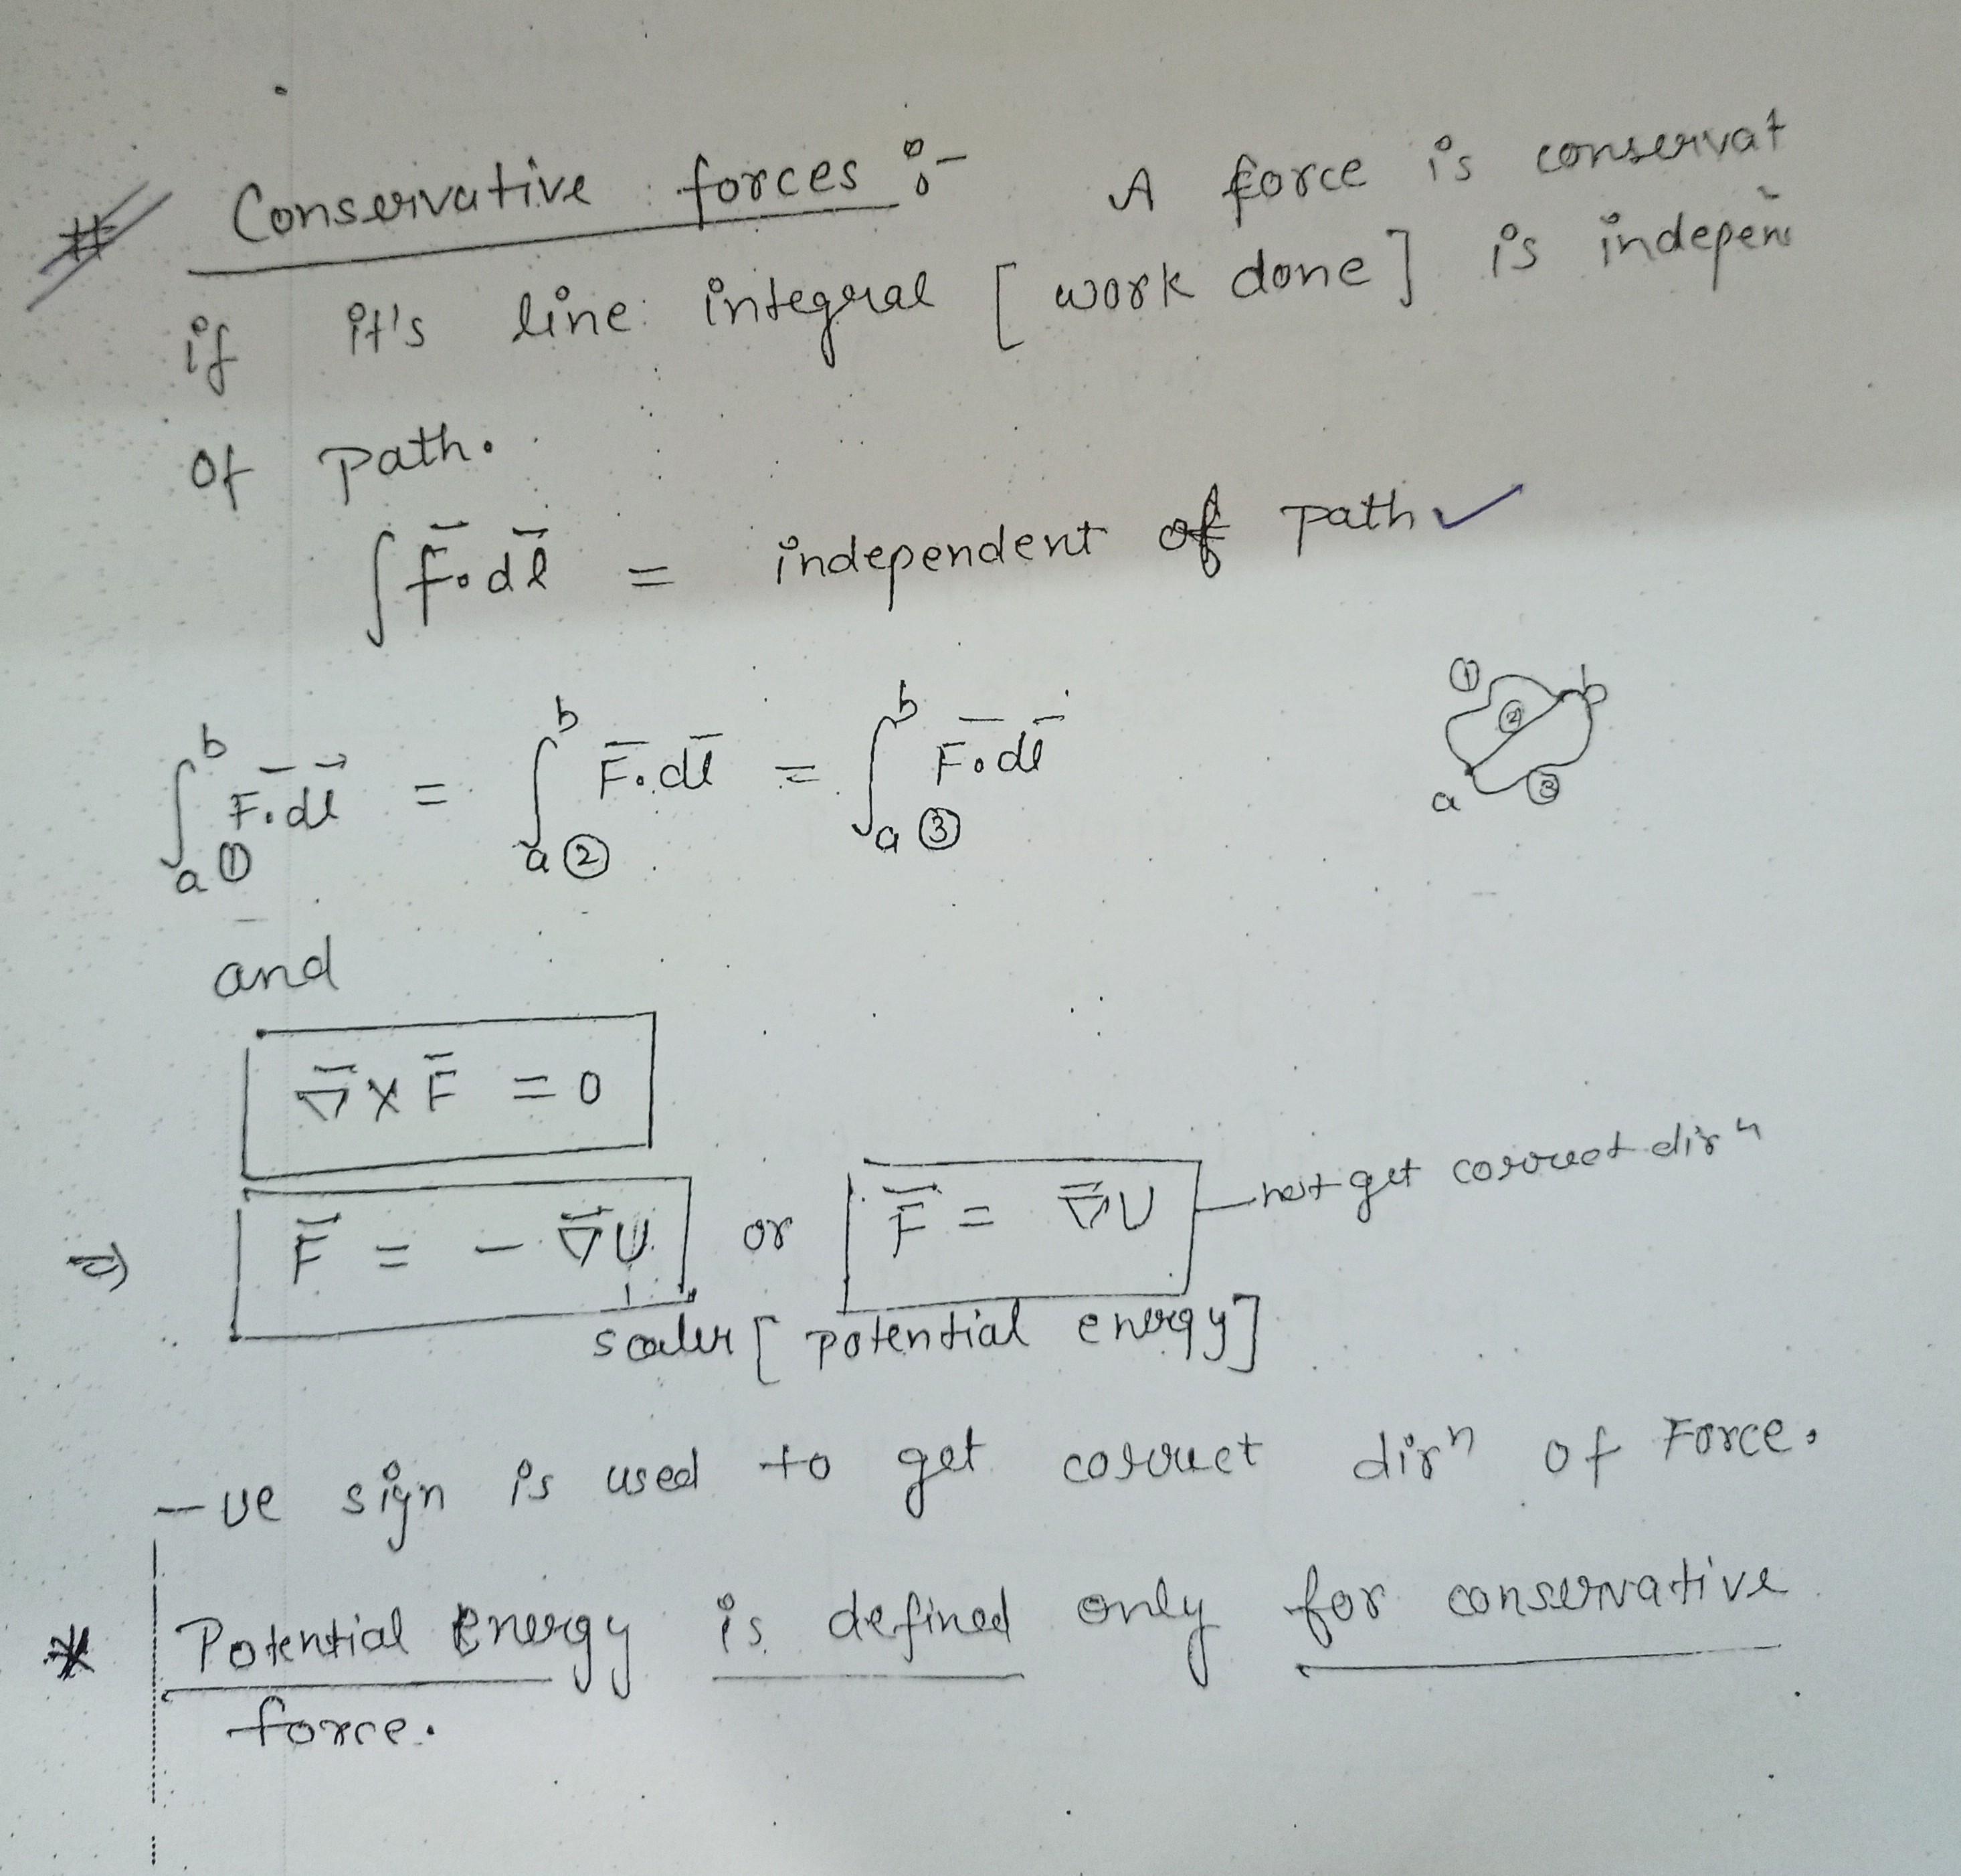 # Conservative forces :- A force is conservat
if it's line integral [ work done ] is indepen
of path.
∫ F̄.dl̄ = independent of path ✓
∫ₐ①ᵇ F̄.dl⃗ = ∫ₐ②ᵇ F̄.dl̄ = ∫ₐ③ᵇ F̄.dl̄
① ② ③ a b
and
∇̄ × F̄ = 0
⇒ F̄ = - ∇̄U or F̄ = ∇̄U get correct dirⁿ
scaler [ potential energy ]
-ve sign is used to get correct dirⁿ of Force.
* Potential Energy is defined only for conservative
force.